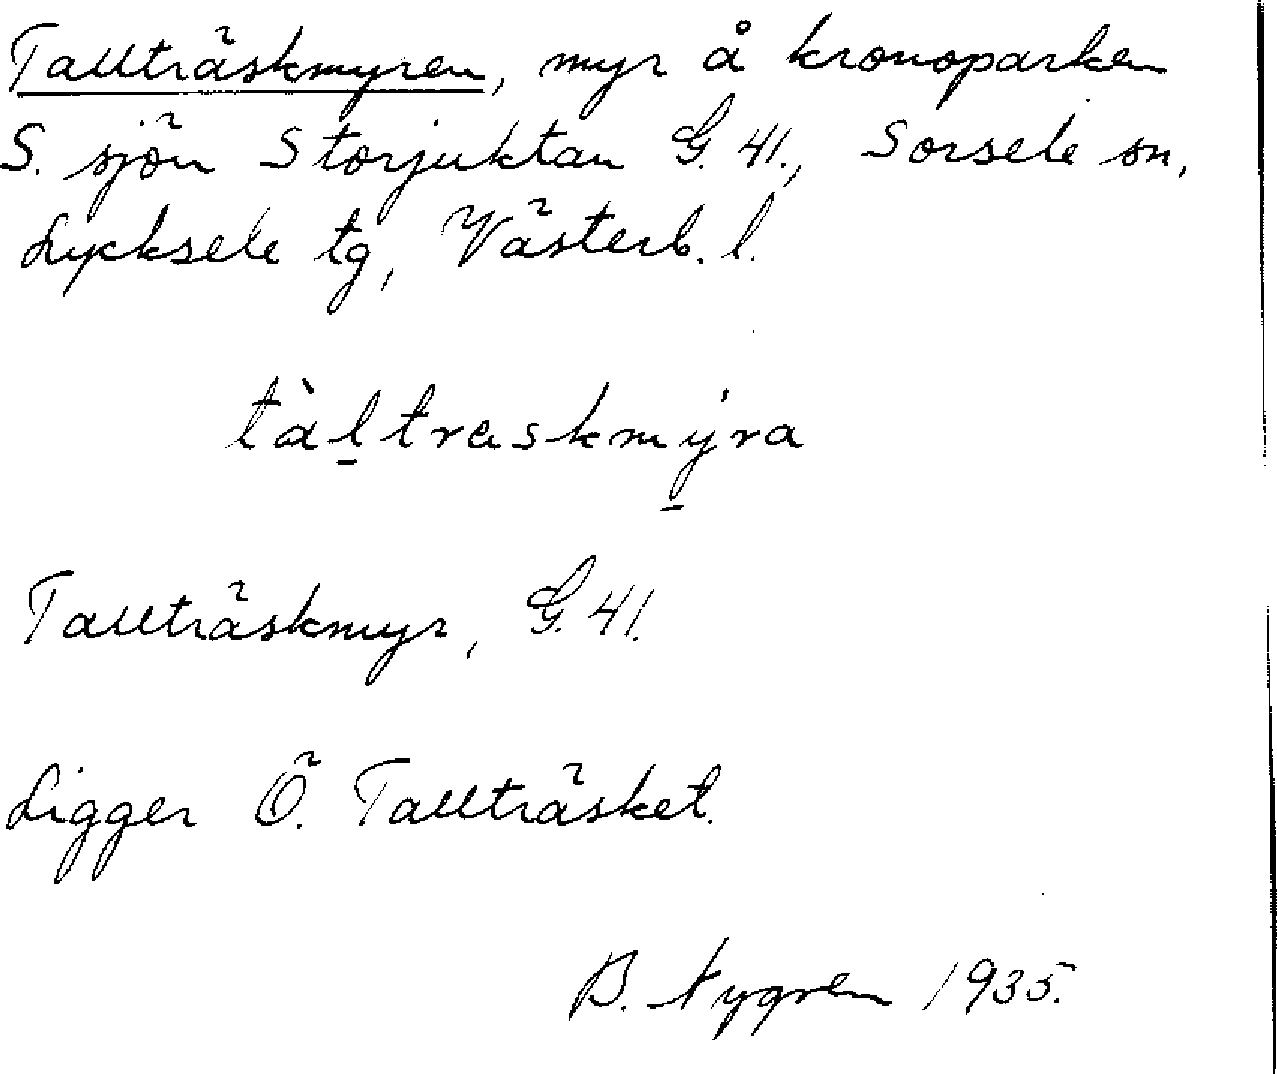 Tallträskmyren, myr å kronoparken
S. sjön Storjuktan G. 41., Sorsele sn,
Lycksele tg, Västerb. l.
tàl̠traskmý̠ra
Tallträskmyr, G. 41.
Ligger Ö. Tallträsket.
B. Nygren 1935.